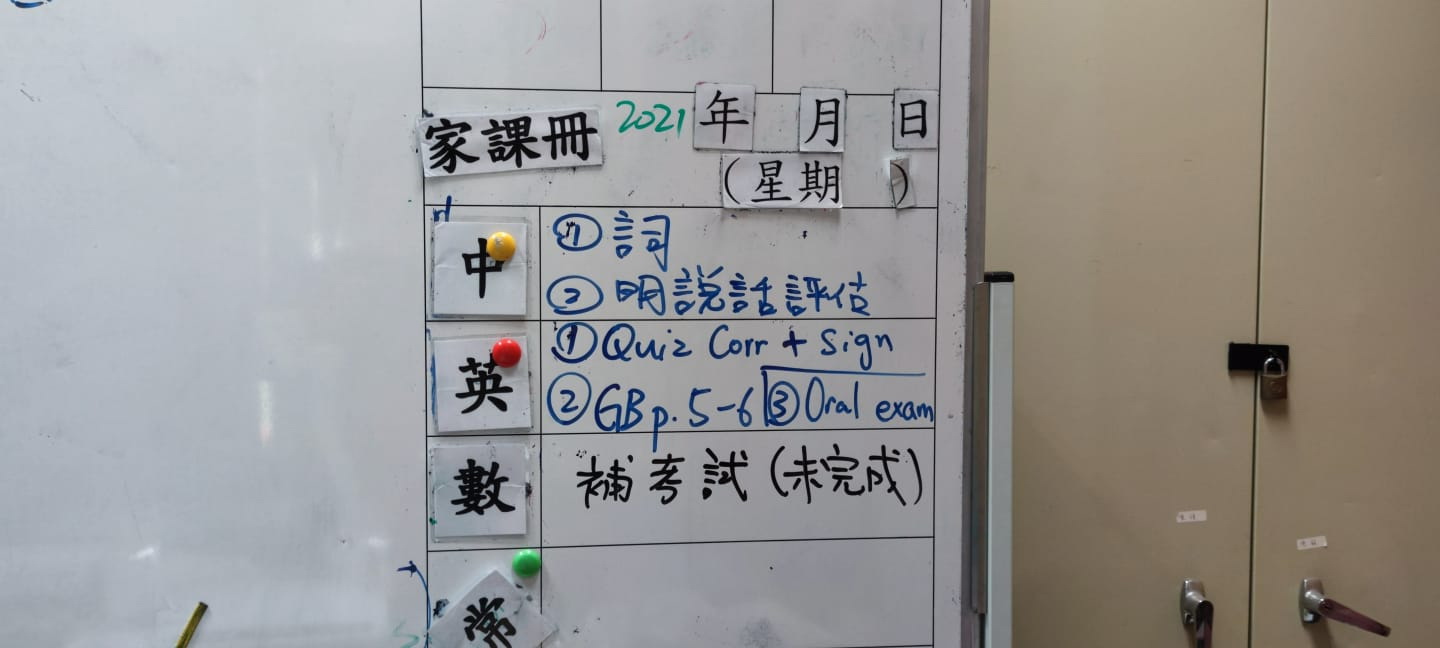 家課冊 2021年 月 日
(星期 )
中 ① 詞
② 明說話評估
英 ① Quiz Corr + Sign
② GB p. 5-6 ③ Oral exam
數 補考試 (未完成)
常